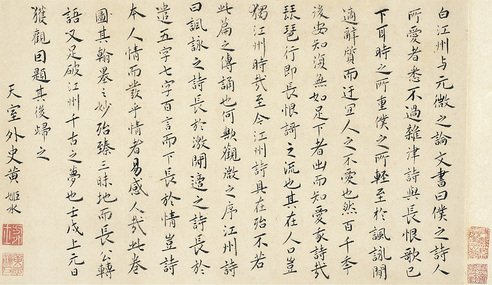 白江州与元微之論文書曰僕之詩人
所愛者悉不過雜律詩與長恨歌已
下耳時之所重僕之所輕至於諷詠閒
適辭質而迂宜人之不愛也然百千年
後安知復無如足下者出而知愛我詩哉
琵琶行即長恨謌之流也其在人口豈
獨江州時哉至今江州詩具在殆不若
此篇之傳誦也何歟觀微之序江州詩
曰諷詠之詩長於激閒適之詩長於
遣五字七字百言而下長於情豈詩
本人情而發乎情者易感人哉此卷
圖其翰墨之妙殆臻三昧地而長公轉
語又足破江州千古之夢也壬戌上元日
獲觀因題其後歸之
天室外史黃姬水